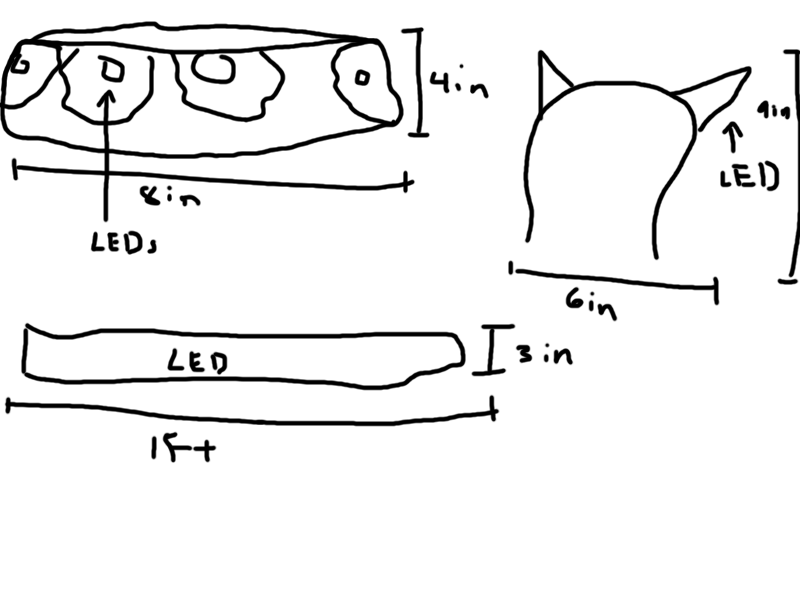 4in
8in
LEDs
9in
LED
6in
LED
3 in
1ft